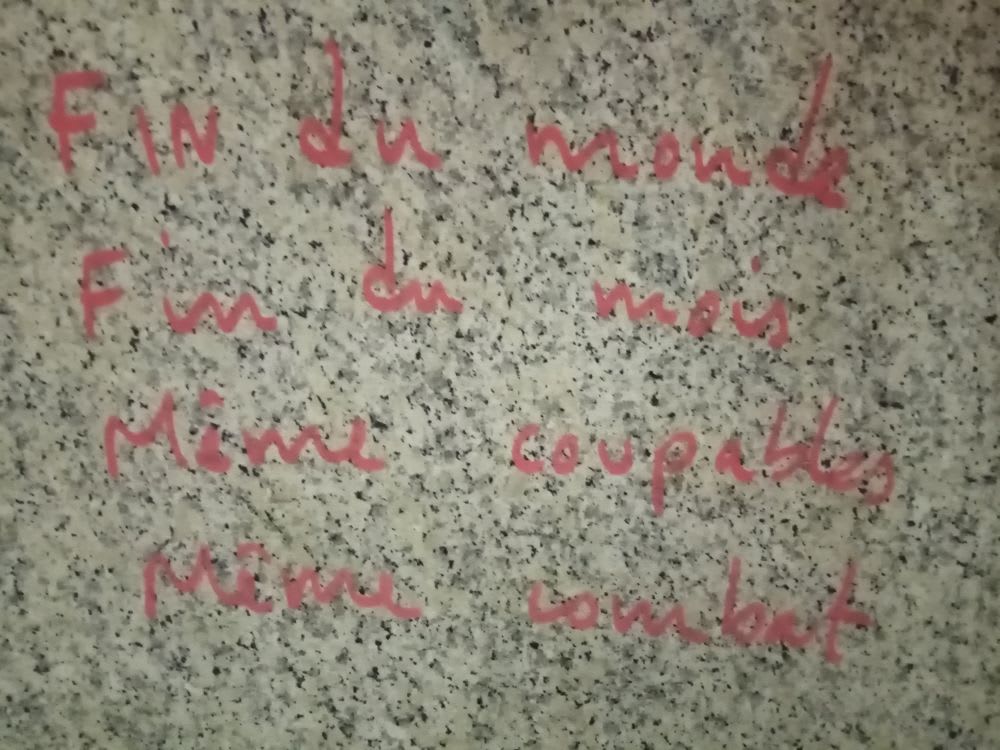 FIN du monde
Fin du mois
Même coupables
Même combat